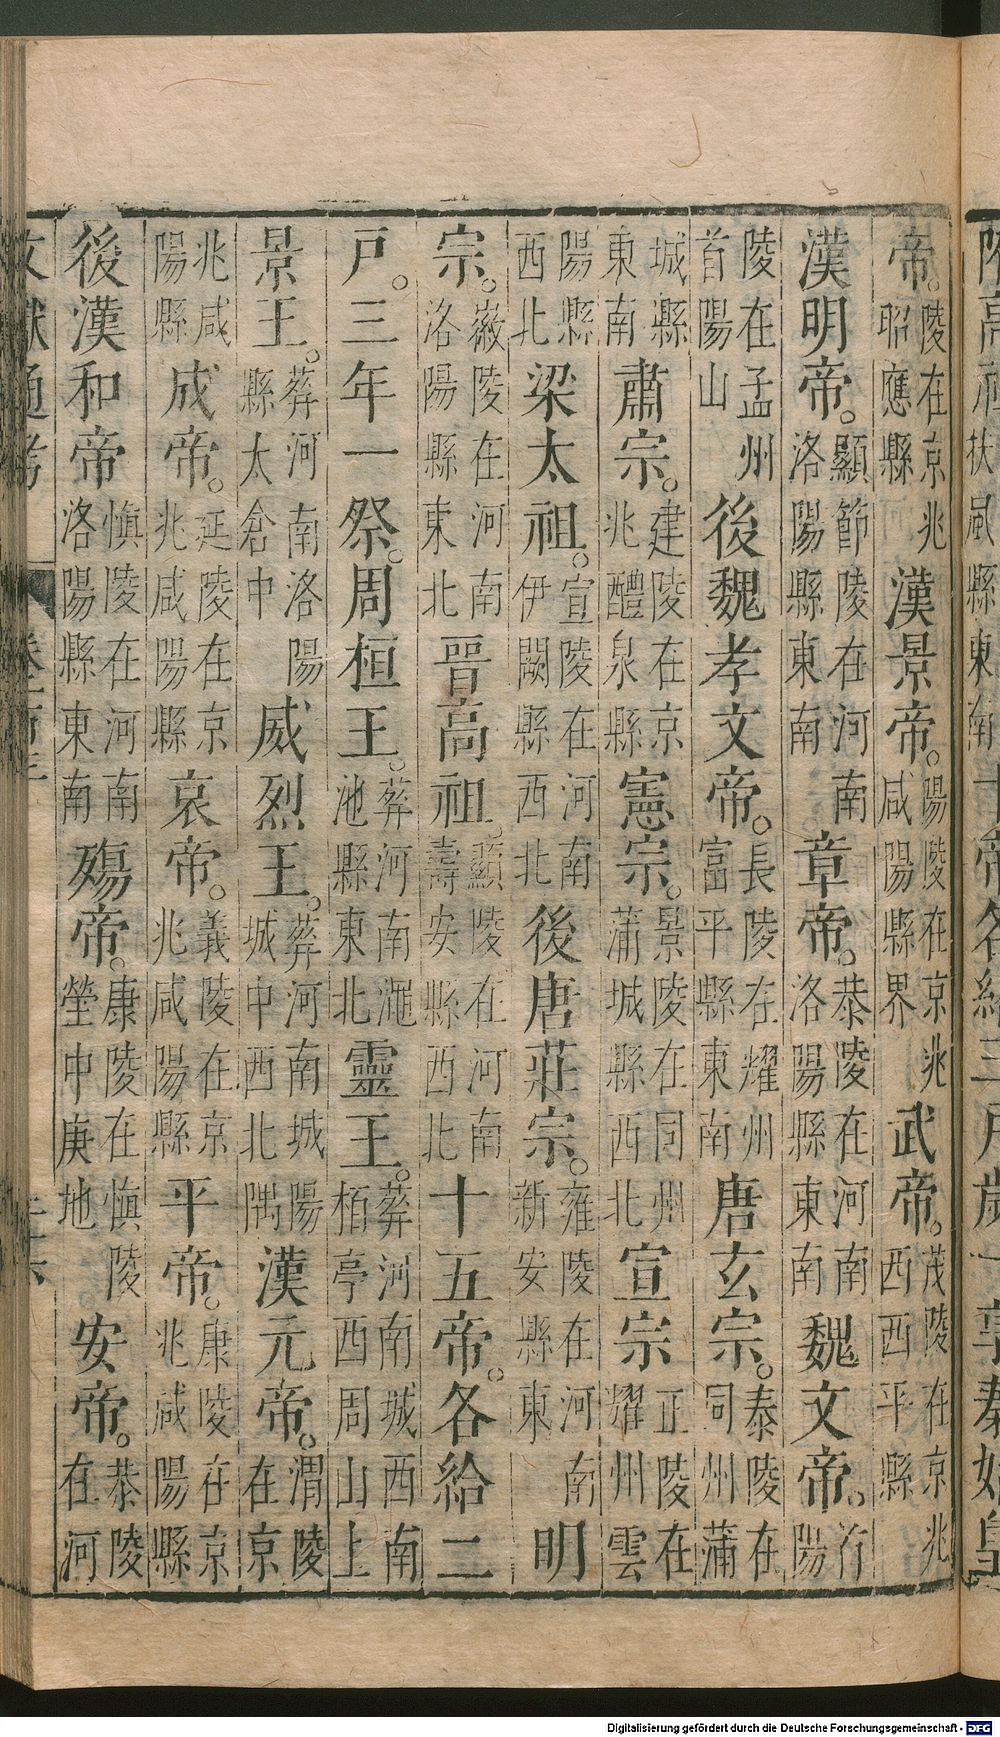 陵高祖扶風縣東南十帝各給三戶歲一享秦始皇
帝。陵在京兆昭應縣漢景帝。陽陵在京兆咸陽縣界武帝。茂陵在京兆西西平縣
漢明帝。顯節陵在河南洛陽縣東南章帝。恭陵在河南洛陽縣東南魏文帝。陽
陵在孟州首陽山後魏孝文帝。長陵在耀州富平縣東南唐玄宗。泰陵在同州蒲
城縣東南肅宗。建陵在京兆醴泉縣憲宗。景陵在同州蒲城縣西北宣宗正陵在耀州雲
陽縣西北梁太祖。宣陵在河南伊闕縣西北後唐莊宗。雍陵在河南新安縣東明
宗。徽陵在河南洛陽縣東北晉高祖。顯陵在河南壽安縣西北十五帝。各給二
戸。三年一祭。周桓王。葬河南澠池縣東北靈王。葬河南城西南栢亭西周山上
景王。葬河南洛陽縣太倉中威烈王。葬河南城陽城中西北隅漢元帝。渭陵在京
兆咸陽縣成帝。延陵在京兆咸陽縣哀帝。義陵在京兆咸陽縣平帝。康陵在京兆咸陽縣
後漢和帝慎陵在河南洛陽縣東南殤帝。康陵在慎陵塋中庚地安帝。恭陵在河
文獻通考
Digitalisierung gefördert durch die Deutsche Forschungsgemeinschaft - DFG